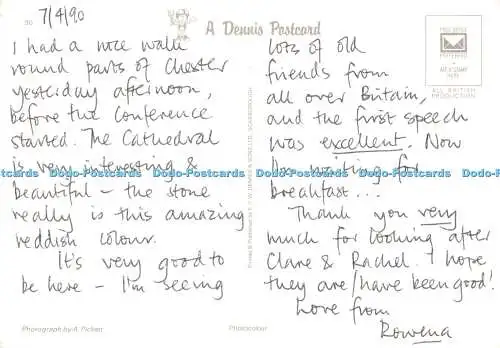 30
7/4/90
A Dennis Postcard
I had a nice walk
round parts of Chester
yesterday afternoon,
before the conference
started. The Cathedral
is very interesting &
beautiful – the stone
really is this amazing
reddish colour.
It's very good to
be here – I'm seeing
lots of old
friends from
all over Britain,
and the first speech
was excellent. Now
I'm waiting for
breakfast...
Thank you very
much for looking after
Clare & Rachel. I hope
they are/have been good!
Love from
Rowena
ALL BRITISH
PRODUCTION
Dodo-Postcards Dodo-Postcards Dodo-Postcards Dodo-Postcards Dodo-Postcards
Photograph by A. Pickett
Photocolour